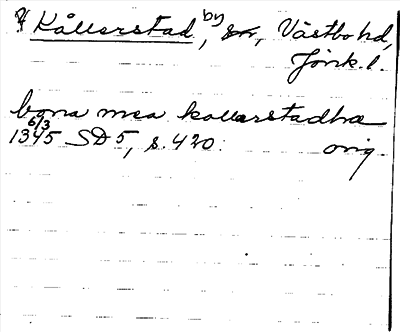 Kållerstad, by, sn, Västbo hd,
Jönk. l.
bona mea kallarstadhræ
6/3
1345 SD 5, s. 420. orig